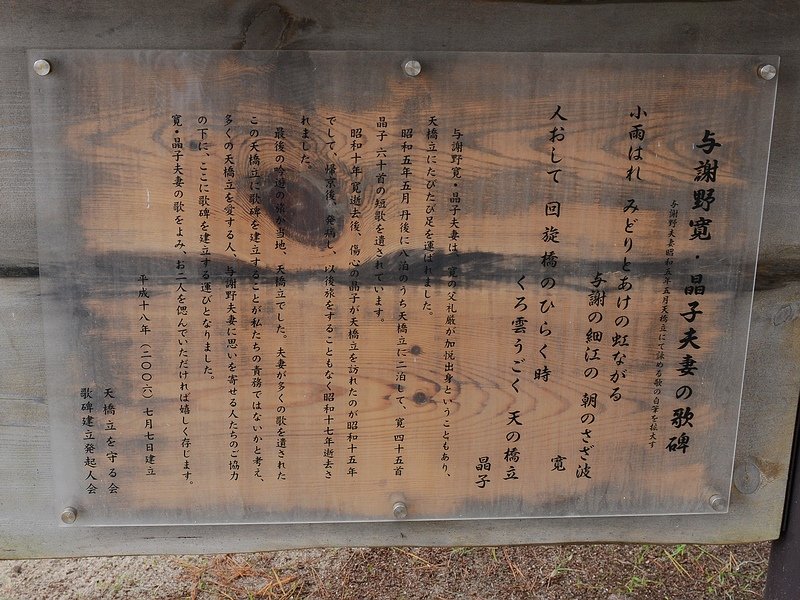 与謝野寛・晶子夫妻の歌碑
与謝野夫妻昭和五年五月天橋立にて詠める歌の自筆を拡大す
小雨はれ みどりとあけの虹ながる
与謝の細江の 朝のさざ波
寛
人おして 回旋橋のひらく時
くろ雲うごく 天の橋立
晶子
与謝野寛・晶子夫妻は、寛の父礼厳が加悦出身ということもあり、
天橋立にたびたび足を運ばれました。
昭和五年五月 丹後に八泊のうち天橋立に二泊して、寛 四十五首
晶子 六十首の短歌を遺されています。
昭和十年 寛逝去後、傷心の晶子が天橋立を訪れたのが昭和十五年
でして、帰京後、発病し、以後旅をすることもなく昭和十七年逝去さ
れました。
最後の吟遊の旅が当地、天橋立でした。夫妻が多くの歌を遺された
この天橋立に歌碑を建立することが私たちの責務ではないかと考え、
多くの天橋立を愛する人、与謝野夫妻に思いを寄せる人たちのご協力
の下に、ここに歌碑を建立する運びとなりました。
寛・晶子夫妻の歌をよみ、お二人を偲んでいただければ嬉しく存じます。
平成十八年(二〇〇六)七月七日建立
天橋立を守る会
歌碑建立発起人会